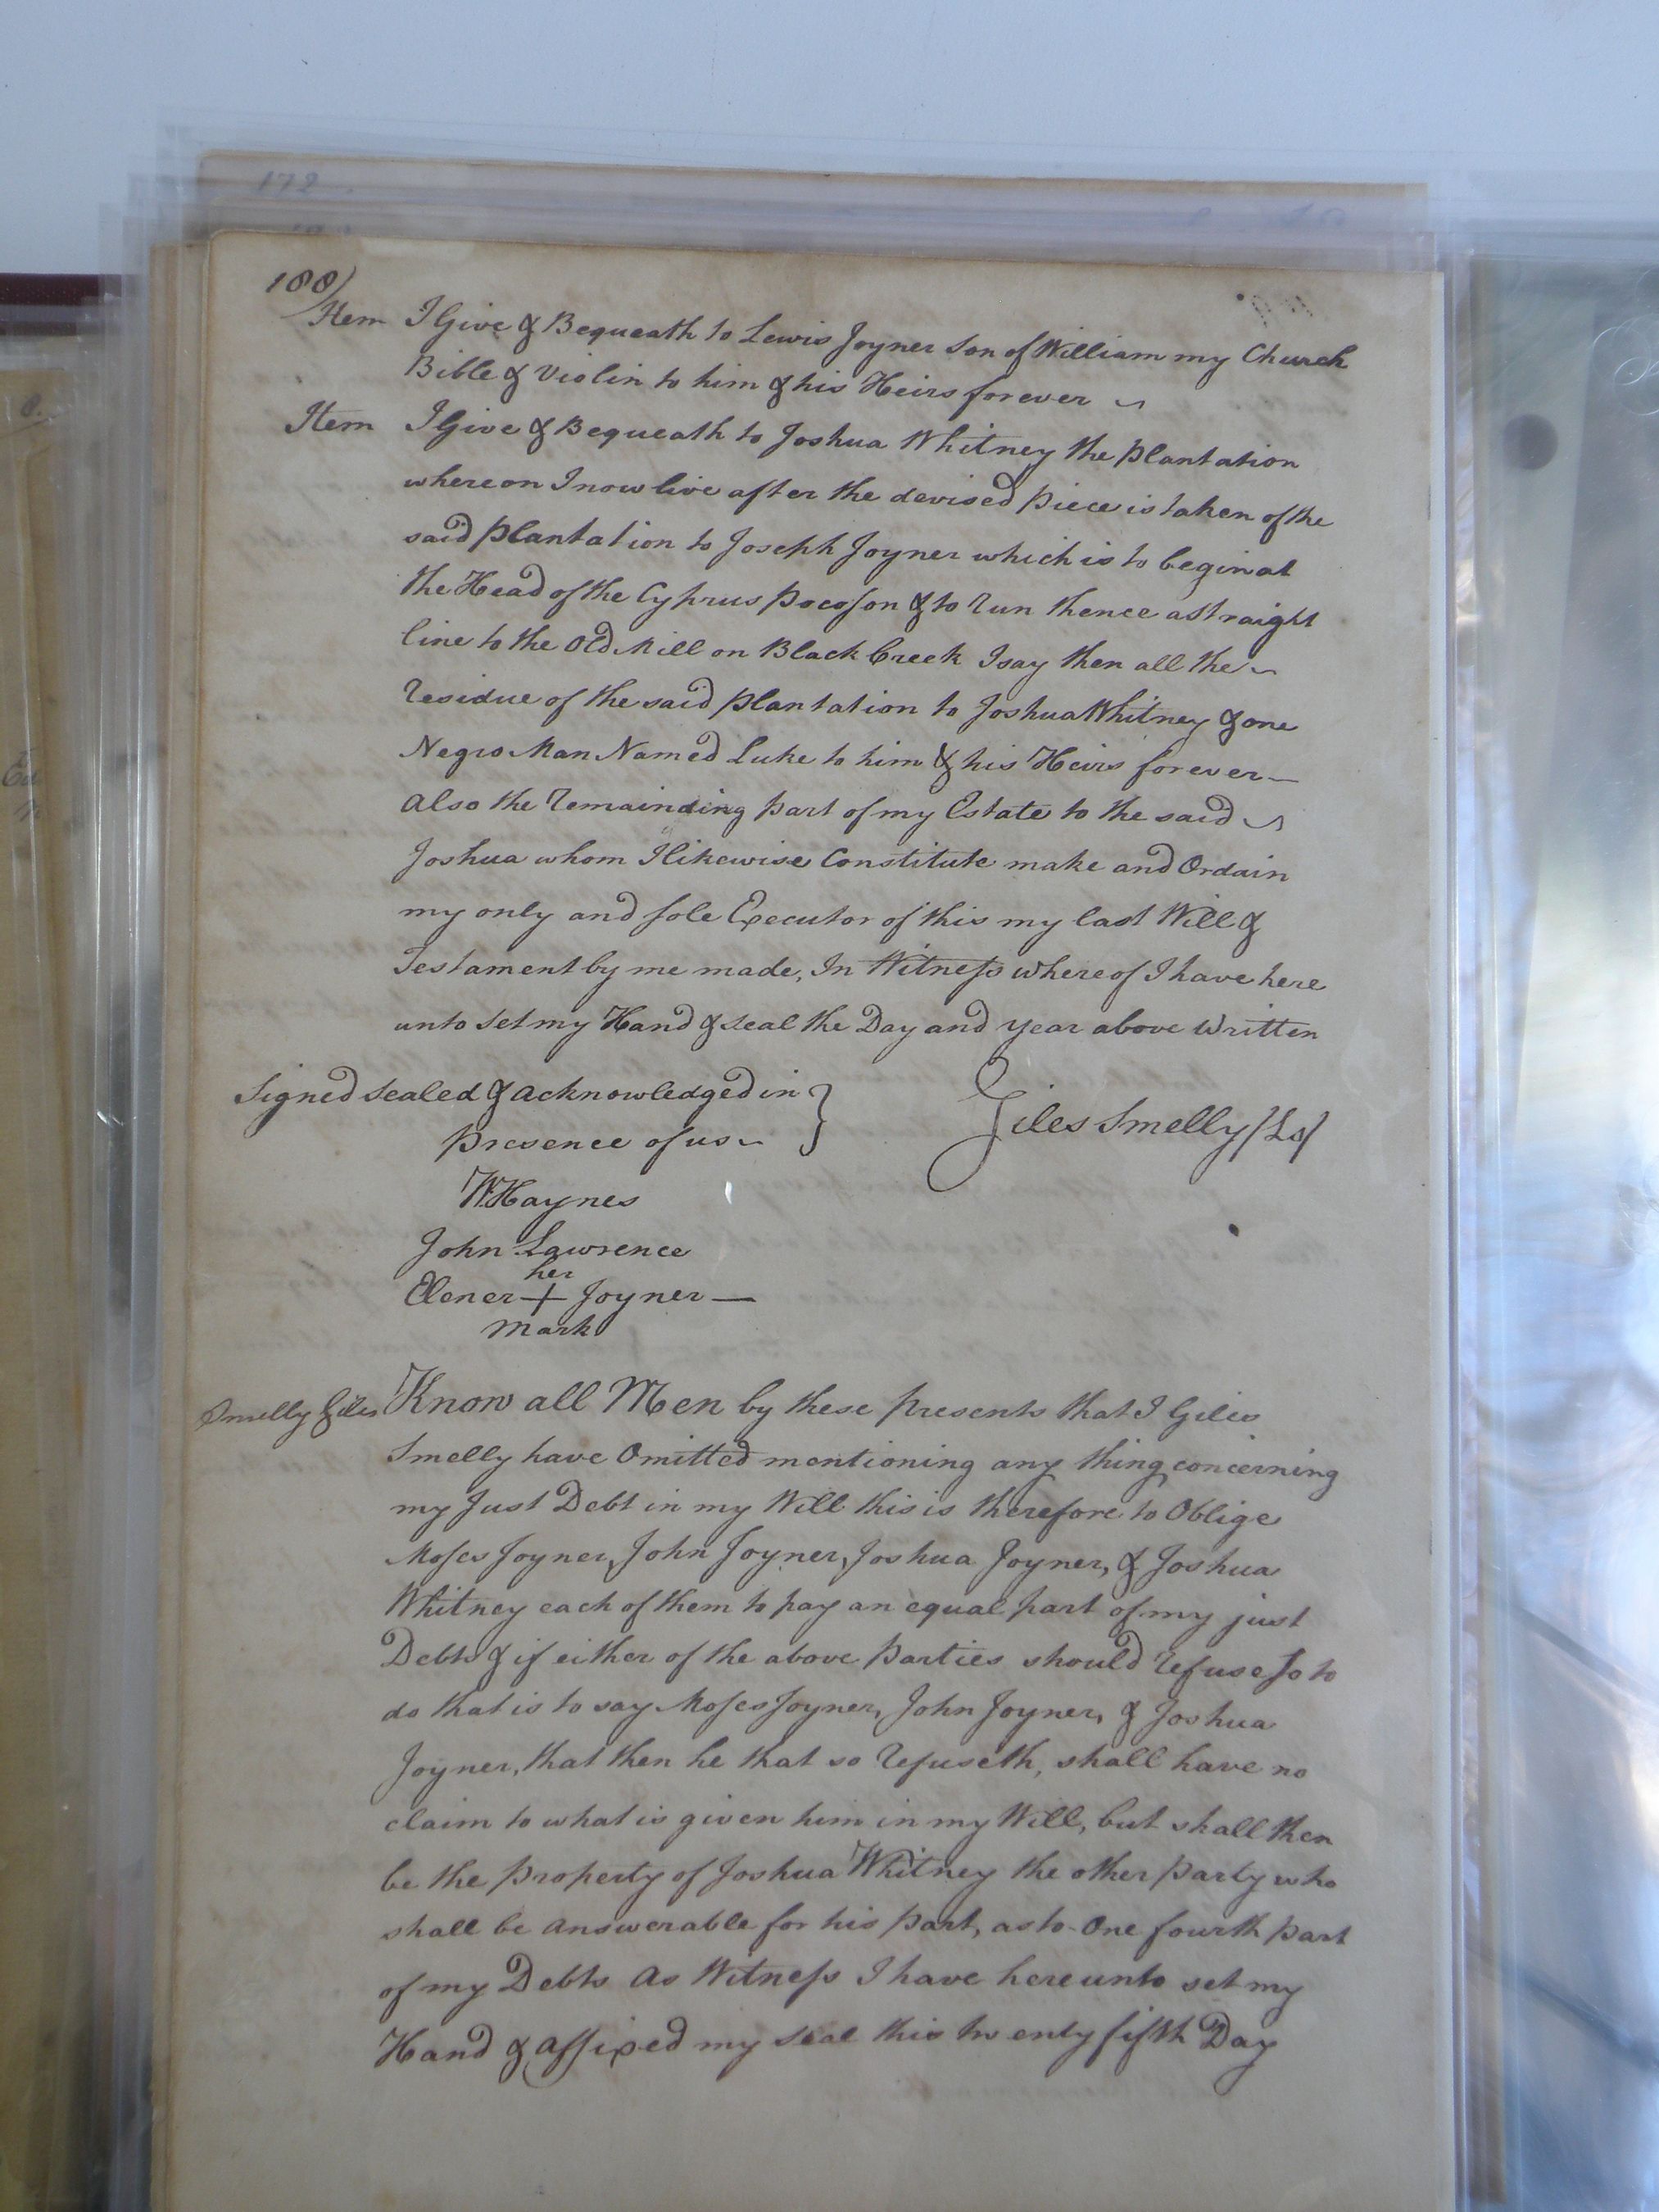 172
188)
Item I Give & Bequeath to Lewis Joyner Son of William my Church
Bible & Violin to him & his Heirs forever
Item I Give & Bequeath to Joshua Whitney the Plantation
whereon I now live after the devised piece is taken of the
said Plantation to Joseph Joyner which is to begin at
the Head of the Cyprus Pocoson & to Run thence a Straight
line to the Old Mill on Black Creek I say then all the
Residue of the said Plantation to Joshua Whitney & one
Negro Man Named Luke to him & his Heirs forever
also the Remainding part of my Estate to the said
Joshua whom I likewise Constitute make and Ordain
my only and Sole Executor of this my last Will &
Testament by me made, In Witness whereof I have here
unto Set my Hand & Seal the Day and Year above Written
Signed Sealed & Acknowledged in }
Presence of us
Giles Smelly (Ls)
W. Haynes
John Lawrence
her
Elener + Joyner
mark
Smelly Giles Know all Men by these Presents that I Giles
Smelly have Omitted mentioning any thing concerning
my Just Debt in my Will this is therefore to Oblige
Moses Joyner, John Joyner, Joshua Joyner, & Joshua
Whitney each of them to pay an equal part of my just
Debts & if either of the above Parties should Refuse So to
do that is to say Moses Joyner, John Joyner, & Joshua
Joyner, that then he that so Refuseth, shall have no
claim to what is given him in my Will, but shall then
be the property of Joshua Whitney the other party who
shall be Answerable for his part, as to One fourth part
of my Debts As Witness I have hereunto set my
Hand & Affixed my Seal this twenty fifth Day